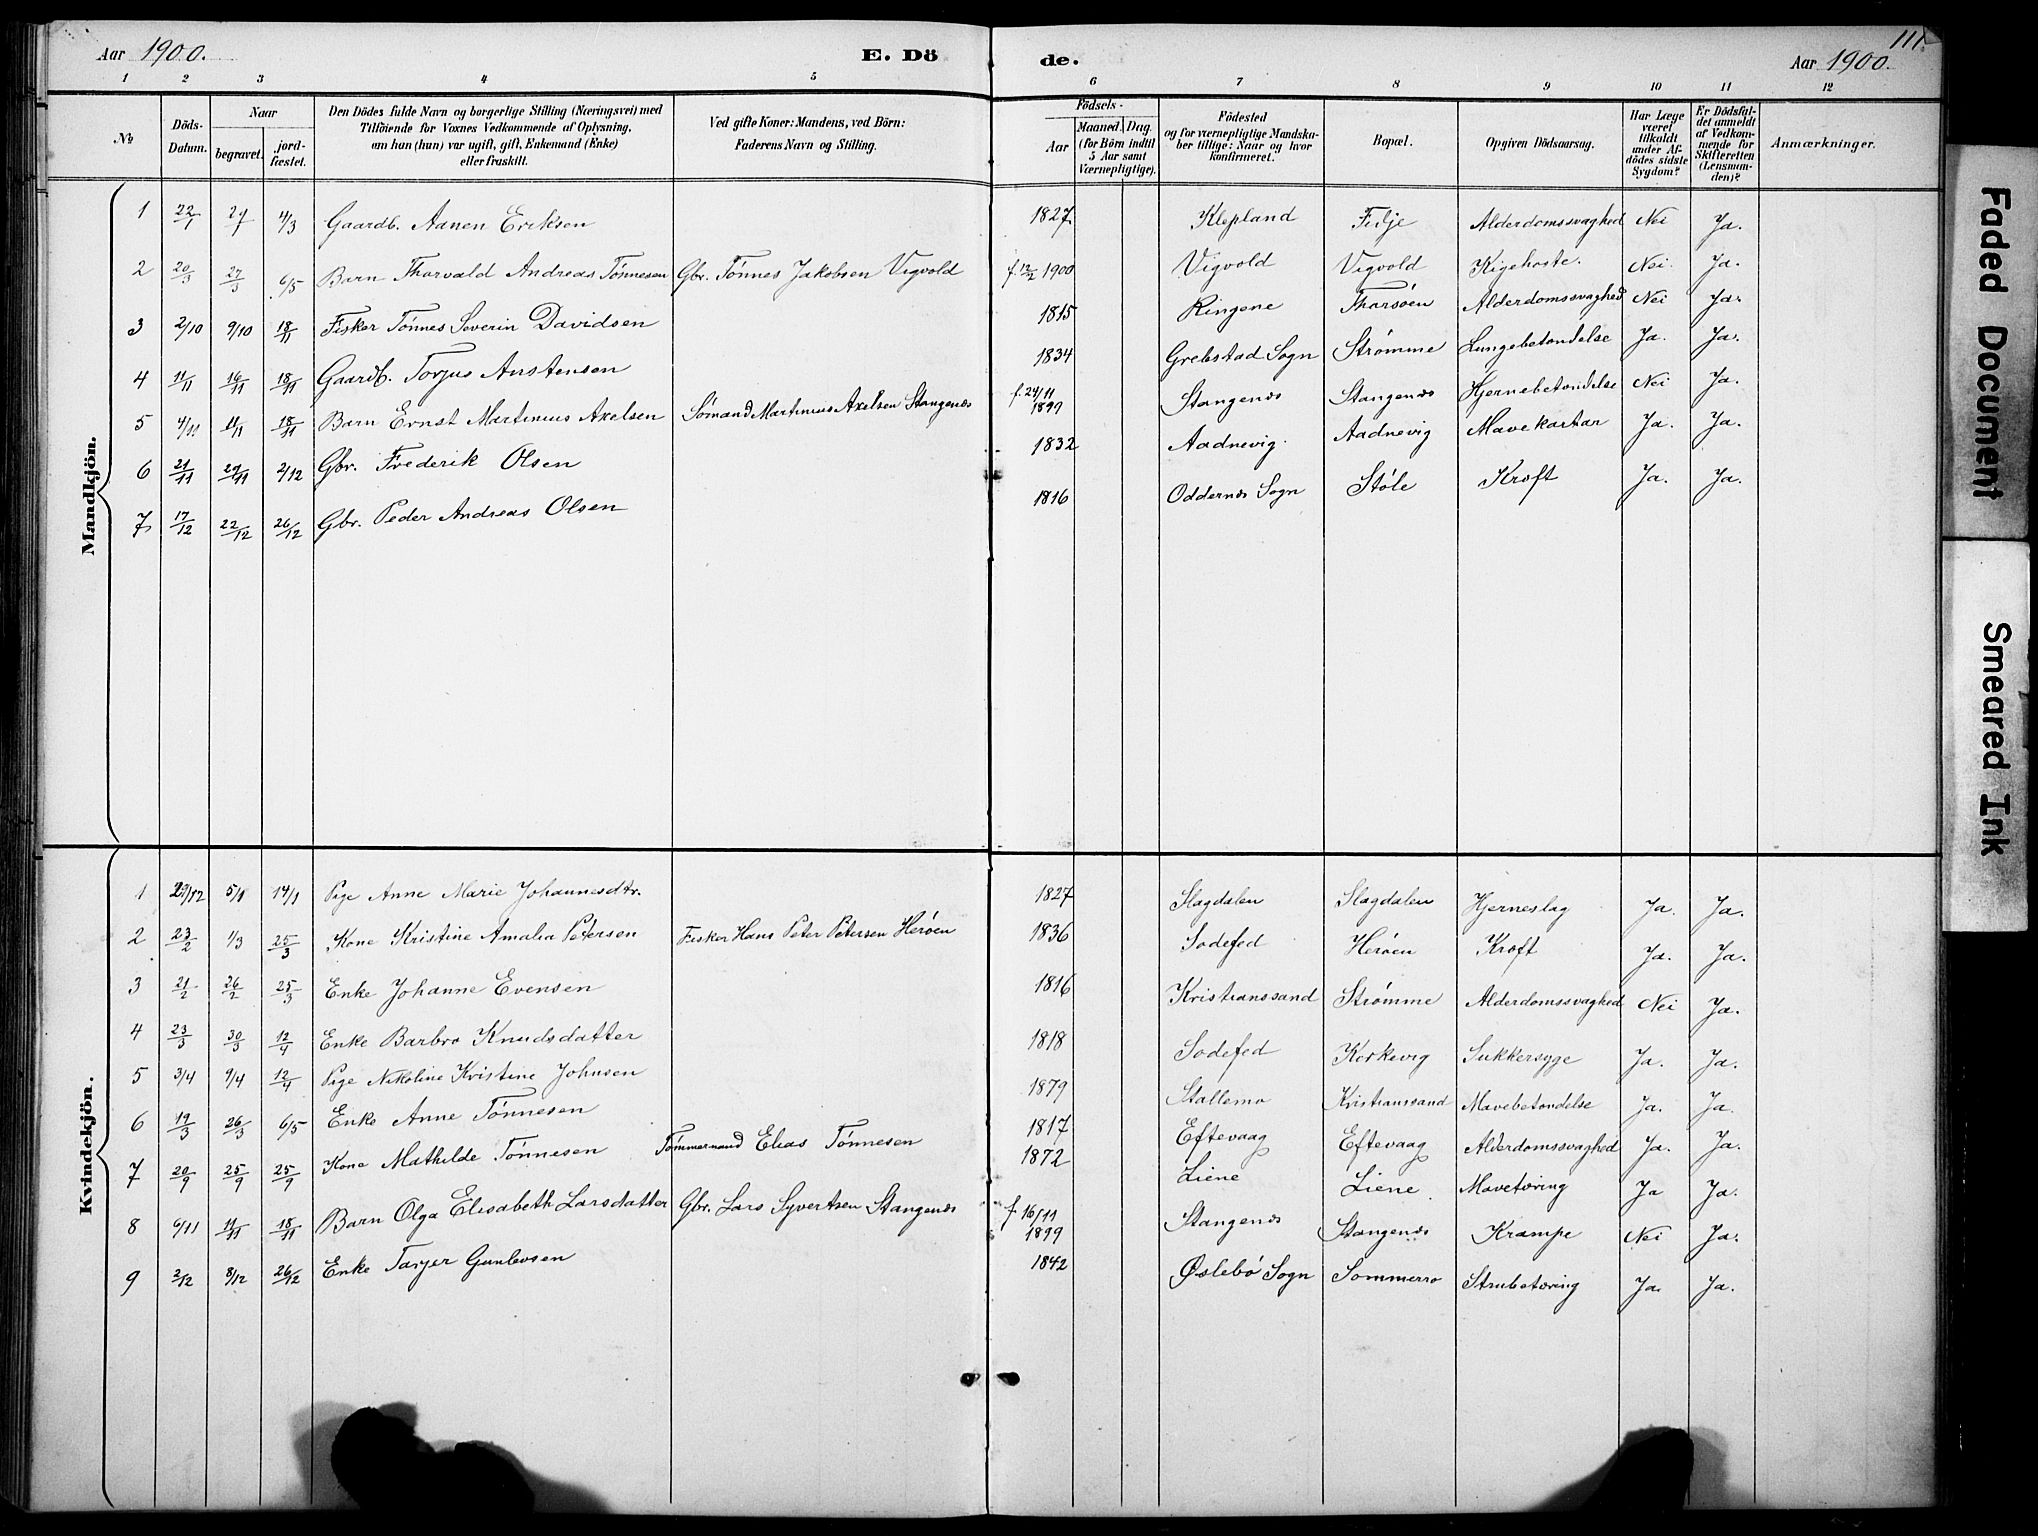 Aar 1900.
E. Dö
de.
Aar 1900.
111.
1 2 3 4 5 6 7 8 9 10 11 12
№
Döds-Datum.
Naar
begravet.
jord-fæstet.
Den Dödes fulde Navn og borgerlige Stilling (Næringsvei) med
Tilföiende for Voxnes Vedkommende af Oplysning,
om han (hun) var ugift, gift, Enkemand (Enke)
eller fraskilt.
Ved gifte Koner: Mandens, ved Börn:
Faderens Navn og Stilling.
Födsels-
Aar
Maaned. Dag.
(for Börn indtil
5 Aar samt
Værnepligtige).
Födested
og for værnepligtige Mandska-
ber tillige: Naar og hvor
konfirmeret.
Bopæl.
Opgiven Dödsaarsag.
Har Læge
været
tilkaldt
under Af-
dödes sidste
Sygdom?
Er Dödsfal-
det anmeldt
af Vedkom-
mende for
Skifteretten
(Lensman-
den)?
Anmærkninger.
Mandkjön.
1 22/1 4/3 Gaardb. Aanen Eriksen 1827 Klepland Fidje Alderdomssvaghed Nei Ja.
2 20/3 27/3 6/5 Barn Thorvald Andreas Tønnesen Gbr. Tønnes Jakobsen Vigvold f. 12/2 1900 Vigvold Vigvold Kigehoste. Nei. Ja.
3 2/10 9/10 18/11 Fisker Tønnes Severin Davidsen 1815 Ringene Tharsøen Alderdomssvaghed Nei Ja.
4 11/11 16/11 18/11 Gaardb. Torjus Anstensen 1834 Grebstad Sogn Strømme Lungebetendelse Ja. Ja.
5 4/11 11/11 18/11 Barn Ernst Martinius Axelsen Sømand Martinius Axelsen Stangenæs f. 24/11 1899 Stangenæs Stangenæs Hjernebetendelse Nei Ja.
6 21/11 29/11 2/12 Gbr. Frederik Olsen 1832 Aadnevig. Aadnevig Mavekatar Ja. Ja.
7 17/12 22/12 26/12 Gbr. Peder Andreas Olsen 1816 Oddernæs Sogn Støle Kræft Ja. Ja.
Kvindekjön.
1 29/12 5/1 14/1 Pige Anne Marie Johannesdtr. 1827 Slagdalen Slagdalen Hjerneslag Ja. Ja.
2 23/2 1/3 25/3 Kone Kristine Amalia Petersen Fisker Hans Peter Petersen Herøen 1836 Sodefed Herøen Kræft Ja. Ja.
3 21/2 26/2 25/3 Enke Johanne Evensen 1816 Kristianssand Strømme Alderdomssvaghed Nei Ja.
4 23/3 30/3 12/4 Enke Barbro Knudsdatter 1818 Sodefed Korkevig Sukkersyge Ja. Ja.
5 3/4 9/4 12/4 Pige Nikoline Kristine Johnsen 1879 Stallemo Kristianssand Mavebetendelse Ja. Ja.
6 19/3 26/3 6/5 Enke Anne Tønnesen 1817 Eftevaag Eftevaag Alderdomssvaghed Ja. Ja.
7 20/9 25/9 25/9 Kone Mathilde Tønnesen Tømmermand Elias Tønnesen 1872 Liene Liene. Mavetæring Ja Ja.
8 6/11 11/11 18/11 Barn Olga Elisabeth Larsdatter Gbr. Lars Syvertsen Stangenæs f. 16/11 1899 Stangenæs Stangenæs Krampe Nei Ja.
9 2/12 8/12 26/12 Enke Tarjer Gunlosen 1842 Øslebø Sogn Sommerro Strubetæring Ja. Ja.
Faded Document
Smeared Ink